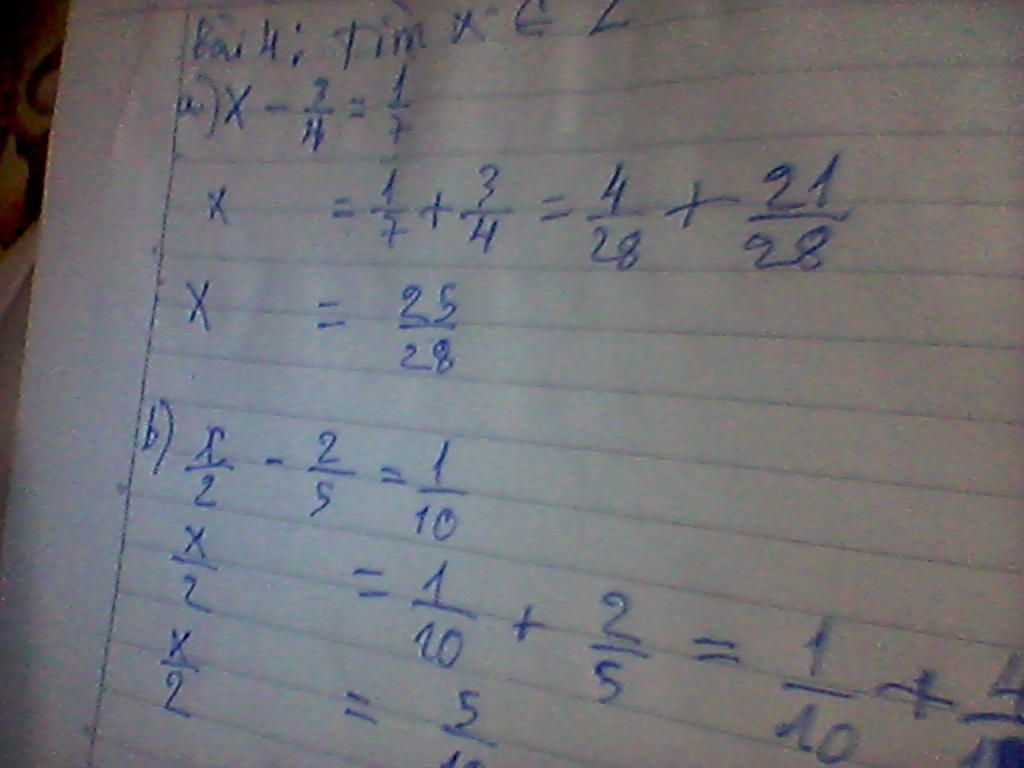 Bài 4: Tìm x ∈ Z
a) x - 3/4 = 1/7
x = 1/7 + 3/4 = 4/28 + 21/28
x = 25/28
b) x/2 - 2/5 = 1/10
x/2 = 1/10 + 2/5 = 1/10 + 4/10
x/2 = 5/10